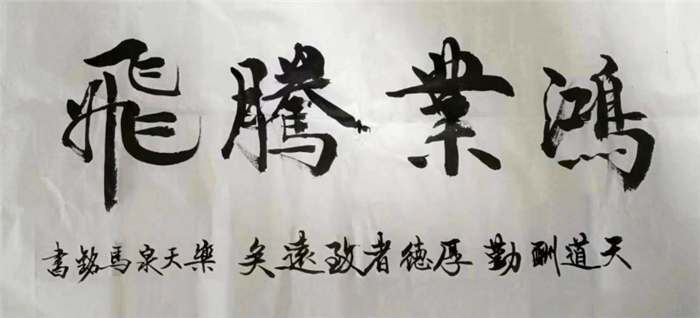 鴻業騰飛
天道酬勤厚德者致遠矣 樂天泉馬銘書